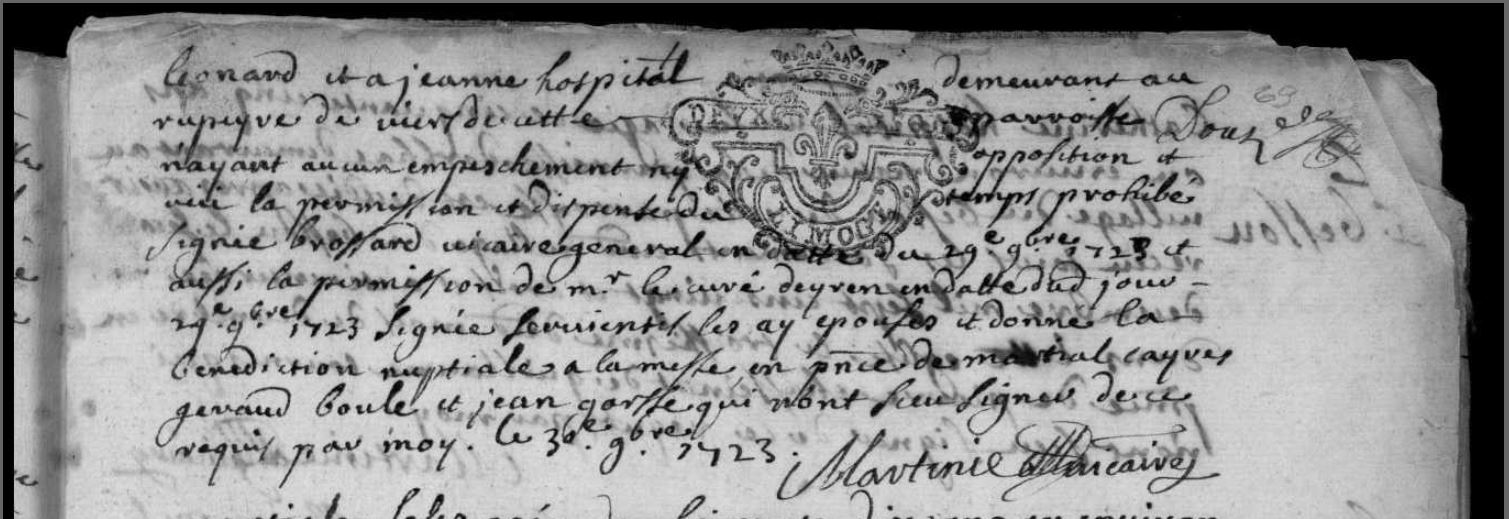 leonard et a jeanne hospital demeurant au
rupeyre de viers de cette parroisse
69
Douze
nayant aucun empeschement ny opposition et
veu la permission et dispense du temps prohibé
DEUX
LIMOG
signée brossard vicaire general en datte du 29.e 9.bre 1723 et
aussi la permission de m.r le curé deyren en datte dud jour
29.e 9.bre 1723 signée les ay epouses et donné la
benediction nuptiale a la messe en pnce de martial cayres
geraud boule et jean gorsse qui nont sceu signer de ce
requis par moy. le 30.e 9.bre 1723.
Martinie vicaire